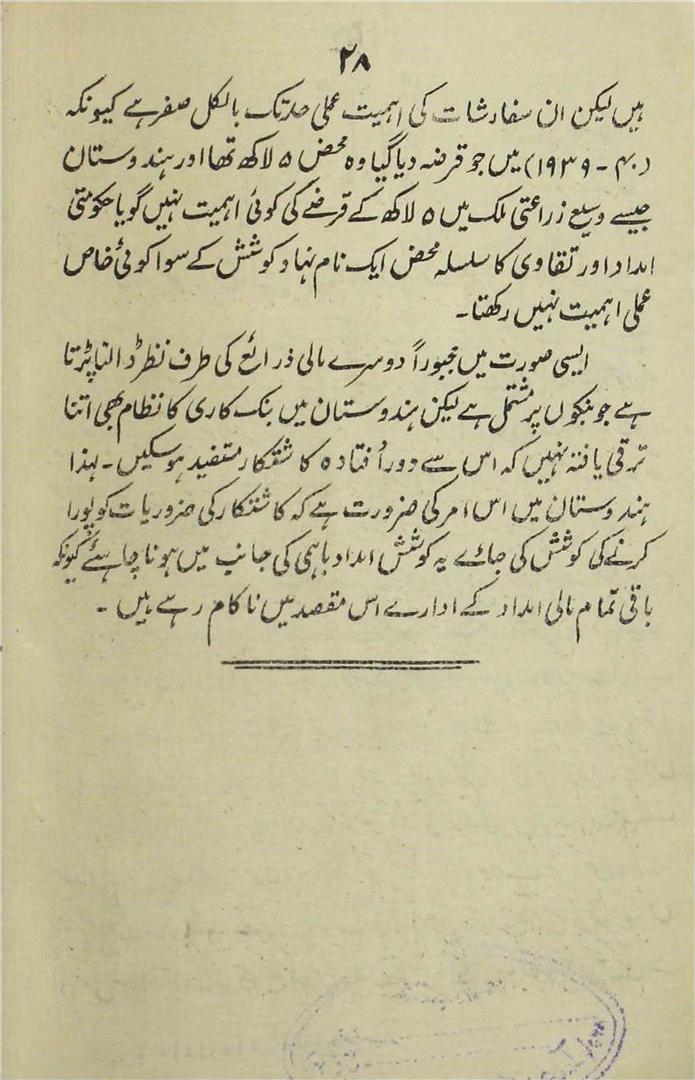 ۲۸
ہیں لیکن ان سفارشات کی اہمیت عملی حد تک بالکل صفر ہے کیونکہ
(۴۰ - ۱۹۳۹) میں جو قرضہ دیا گیا وہ محض ۵ لاکھ تھا اور ہندوستان
جیسے وسیع زراعتی ملک میں ۵ لاکھ کے قرضے کی کوئی اہمیت نہیں گویا حکومتی
امداد اور تقاوی کا سلسلہ محض ایک نام نہاد کوشش کے سوا کوئی خاص
عملی اہمیت نہیں رکھتا۔
ایسی صورت میں مجبوراً دوسرے مالی ذرائع کی طرف نظر ڈالنا پڑتا
ہے جو بنکوں پر مشتمل ہے لیکن ہندوستان میں بنک کاری کا نظام بھی اتنا
ترقی یافتہ نہیں کہ اس سے دور اُفتادہ کاشتکار مستفید ہو سکیں۔ لہذا
ہندوستان میں اس امر کی ضرورت ہے کہ کاشتکار کی ضروریات کو پورا
کرنے کی کوشش کی جائے یہ کوشش امداد باہمی کی جانب میں ہونا چاہئے کیونکہ
باقی تمام مالی امداد کے ادارے اس مقصد میں ناکام رہے ہیں ۔